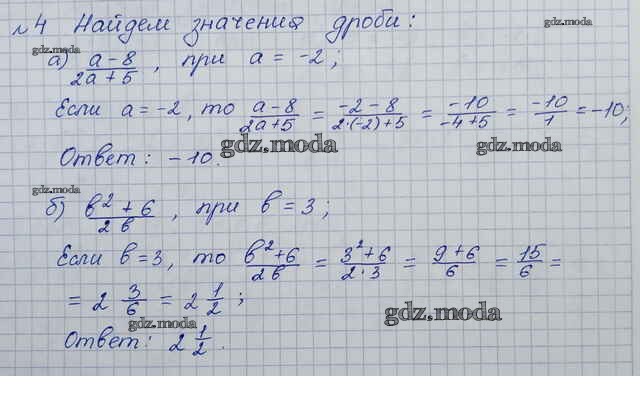 №4 Найдем значения дроби:
gdz.moda gdz.moda
а) (a-8)/(2a+5), при a = -2;
Если a = -2, то (a-8)/(2a+5) = (-2-8)/(2·(-2)+5) = (-10)/(-4+5) = (-10)/1 = -10;
gdz.moda gdz.moda gdz.moda
Ответ: -10.
gdz.moda
б) (b²+6)/(2b), при b = 3;
Если b = 3, то (b²+6)/(2b) = (3²+6)/(2·3) = (9+6)/6 = 15/6 =
= 2 3/6 = 2 1/2;
gdz.moda gdz.moda
Ответ: 2 1/2.